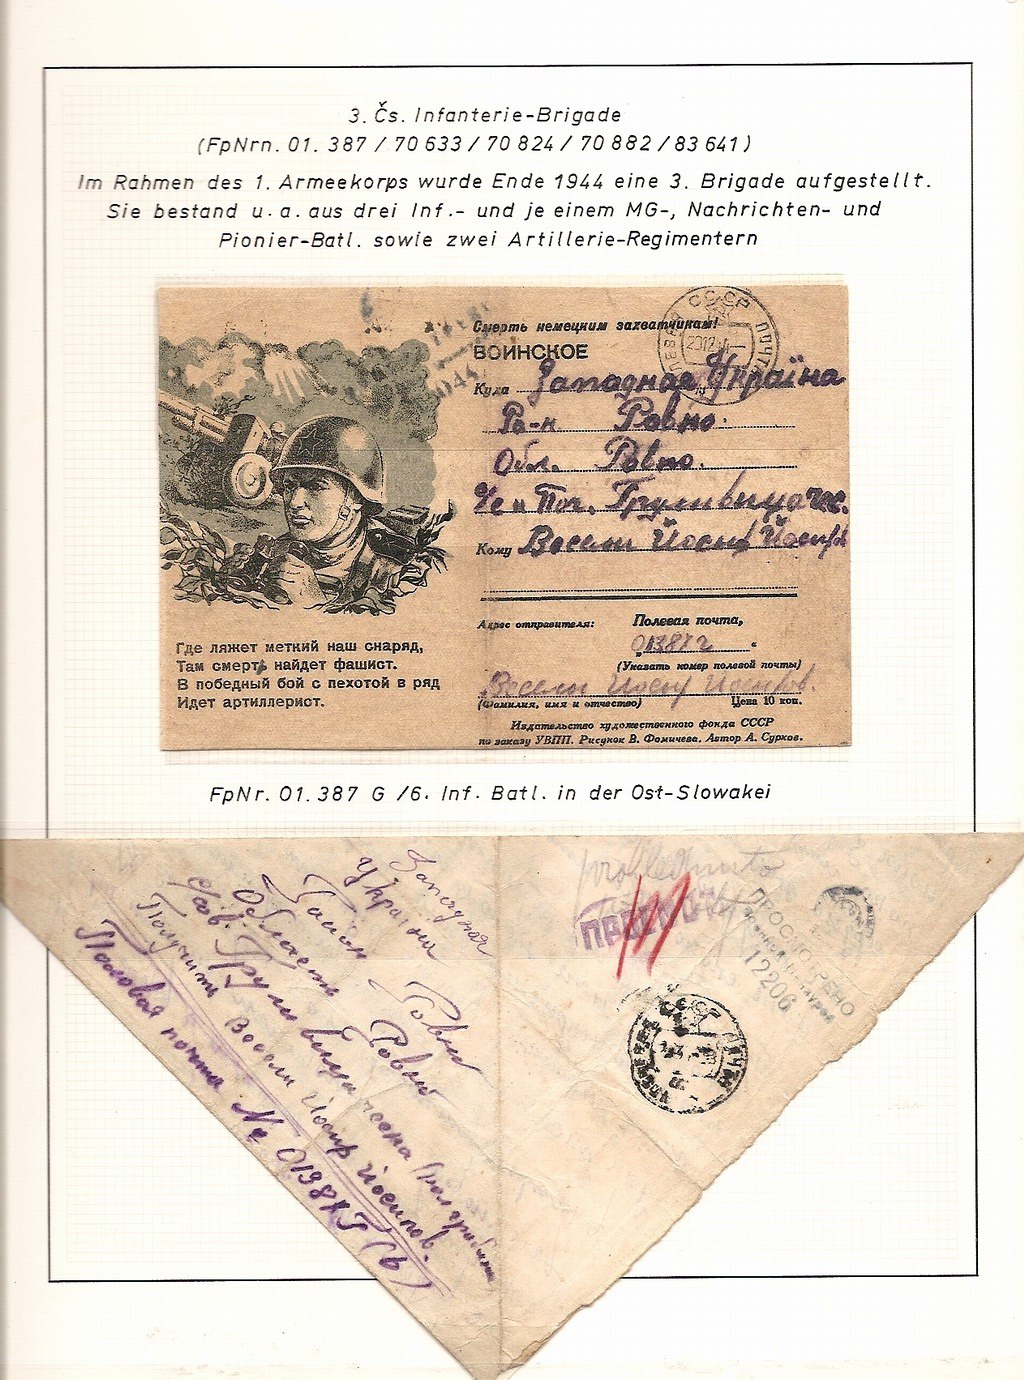 3. Čs. Infanterie-Brigade
(FpNrn. 01. 387 / 70 633 / 70 824 / 70 882 / 83 641)
Im Rahmen des 1. Armeekorps wurde Ende 1944 eine 3. Brigade aufgestellt.
Sie bestand u. a. aus drei Inf.- und je einem MG-, Nachrichten- und
Pionier-Batl. sowie zwei Artillerie-Regimentern
Смерть немецким захватчикам!
ВОИНСКОЕ
СССР ПОЧТА
Куда Западная Україна
Ро-н Ровно.
Обл. Ровно.
Кому Весели Йосиф
Адрес отправителя: Полевая почта,
01387г
(Указать номер полевой почты)
Весели Йосиф Йосипов.
(Фамилия, имя и отчество) Цена 10 коп.
Издательство художественного фонда СССР
по заказу УВПП. Рисунок В. Фомичева. Автор А. Сурков.
Где ляжет меткий наш снаряд,
Там смерть найдет фашист.
В победный бой с пехотой в ряд
Идет артиллерист.
FpNr. 01. 387 G /6. Inf. Batl. in der Ost-Slowakei
Западная
Україна
Район - Ровно
Область Ровно
Получить Весели Йосиф Йосипов.
Полевая почта № 01387
prohlednuto
ПРОСМОТРЕНО
12206
СССР